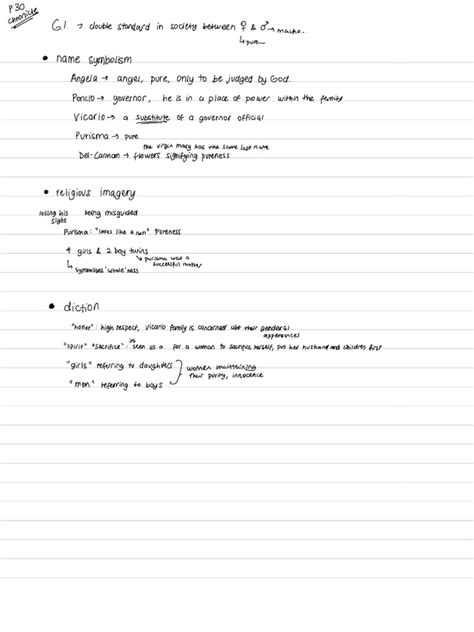 P30
chronicle
GI → double standard in society between ♀ & ♂ → macho..
↳ pure..
• name symbolism
Angela → angel, pure, only to be judged by God.
Poncio → governor, he is in a place of power within the family
Vicario → a substitute of a governor official
Purisma → pure
the virgin mary has the same last name
Del-Carman → flowers signifying pureness
• religious imagery
losing his sight being misguided
Purisma: "looks like a nun" Pureness
4 girls & 2 boy twins
↳ purisma was a successful mother
↳ symbolises 'whole'ness
• diction
"honor": high respect, vicario family is concerned abt their general appearances
"spirit" "sacrifice": is seen as a for a woman to sacrifice herself, put her husband and children first
"girls" referring to daughters
"men" referring to boys
women maintaining their purity, innocence